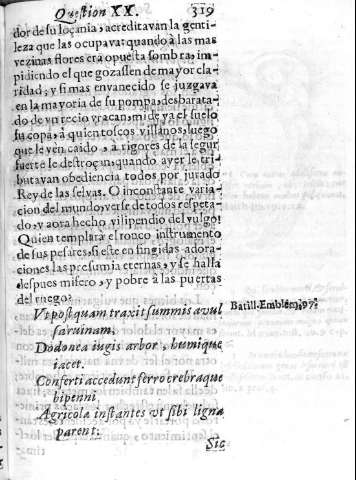 Question XX. 319
dor de su loçania, acreditavan la genti-
leza que las ocupava: quando à las mas
vezinas flores era opuesta sombra, im-
pidiendo el que gozassen de mayor cla-
ridad, y si mas envanecido se juzgava
en la mayoria de su pompa, desbarata-
do de un recio vracan, mide ya el suelo
su copa, à quien toscos villanos, luego
que le ven caido, à rigores de la segur
fuerte le destroçan, quando ayer le tri-
butavan obediencia todos por jurado
Rey de las selvas. O inconstante varia-
cion del mundo, verse de todos respeta-
do, y aora hecho vilipendio del vulgo!
Quien templara el ronco instrumento
de sus pesares, si este en fingidas adora-
ciones las presumia eternas, y se halla
despues misero, y pobre à las puertas
del ruego:
Vt postquam traxit summis avul
sa ruinam,
Batill. Emblem. 97.
Dodonea iugis arbor, humique
iacet.
Conferti accedunt ferro crebraque
bipenni
Agricolæ instantes vt sibi ligna
parent:
Sic